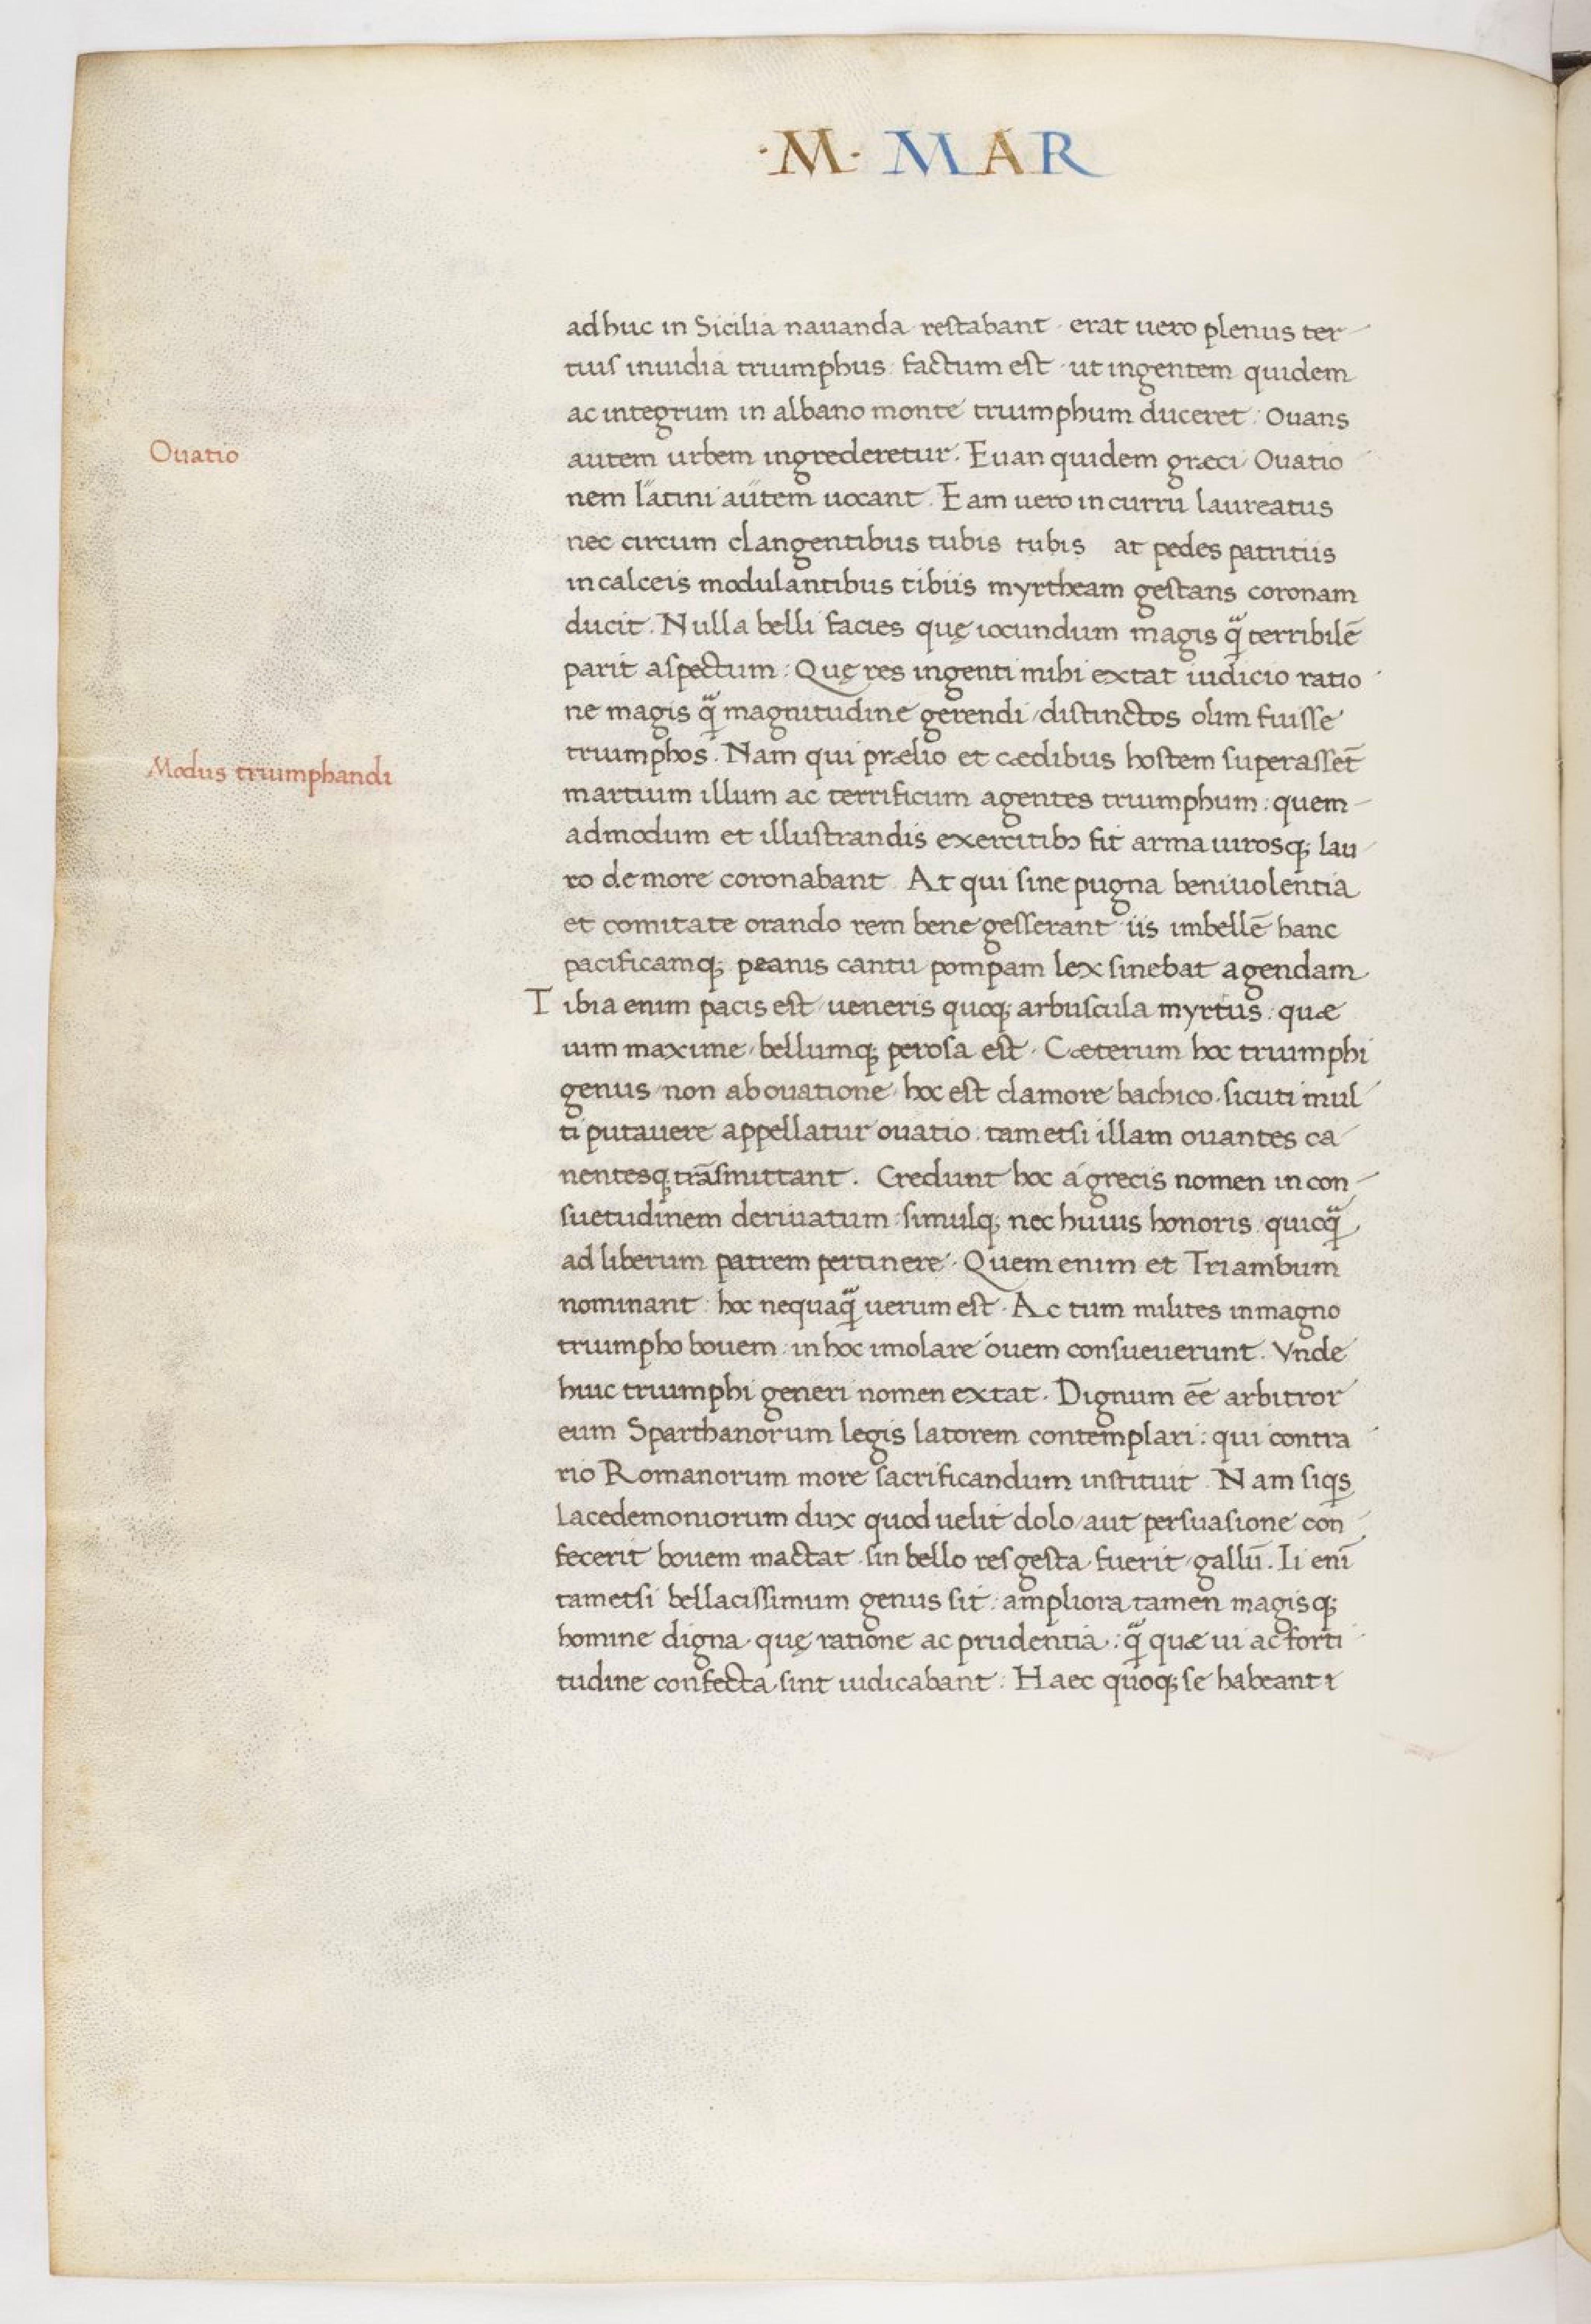 ·M· MAR
adhuc in Sicilia nauanda restabant · erat uero plenus ter-
tius inuidia triumphus: factum est · ut ingentem quidem
ac integrum in albano monte triumphum duceret: Ouans
Ouatio
autem urbem ingrederetur. Euan quidem græci Ouatio
nem latini autem uocant. Eam uero in curru laureatus
nec circum clangentibus tubis tubis at pedes patritiis
in calceis modulantibus tibiis myrtheam gestans coronam
ducit. Nulla belli facies quę iocundum magis q̃ terribilē
parit aspectum: Quę res ingenti mihi extat iudicio ratio
ne magis q̃ magnitudine gerendi / distinctos olim fuisse
Modus triumphandi
triumphos. Nam qui prælio et cædibus hostem superassēt
martium illum ac terrificum agentes triumphum: quem-
admodum et illustrandis exercitibꝫ fit arma uirosqꝫ lau
ro de more coronabant. At qui sine pugna beniuolentia
et comitate orando rem bene gesserant iis imbellē hanc
pacificamqꝫ peanis cantu pompam lex sinebat agendam
Tibia enim pacis est / ueneris quoqꝫ arbuscula myrtus: quæ
uim maxime / bellumqꝫ perosa est. Cæterum hoc triumphi
genus / non ab ouatione / hoc est clamore bachico · sicuti mul
ti putauere appellatur ouatio. tametsi illam ouantes ca
nentesqꝫ trāsmittant. Credunt hoc á grecis nomen in con-
suetudinem deriuatum: simulqꝫ nec huius honoris quicq̃
ad liberum patrem pertinere. Quem enim et Triambum
nominant: hoc nequaq̃ uerum est. Ac tum milites in magno
triumpho bouem: in hoc imolare óuem consueuerunt. Vnde
huic triumphi generi nomen extat. Dignum eē arbitror
eum Sparthanorum legis latorem contemplari: qui contra
rio Romanorum more sacrificandum instituit. Nam siqs
Lacedemoniorum dux quod uelit dolo / aut persuasione con
fecerit bouem mactat · sin bello res gesta fuerit / gallū. Ii enī
tametsi bellacissimum genus sit: ampliora tamen magisqꝫ
homine digna · quę ratione ac prudentia: q̃ quæ ui ac forti
tudine confecta sint iudicabant: Haec quoqꝫ se habeant i